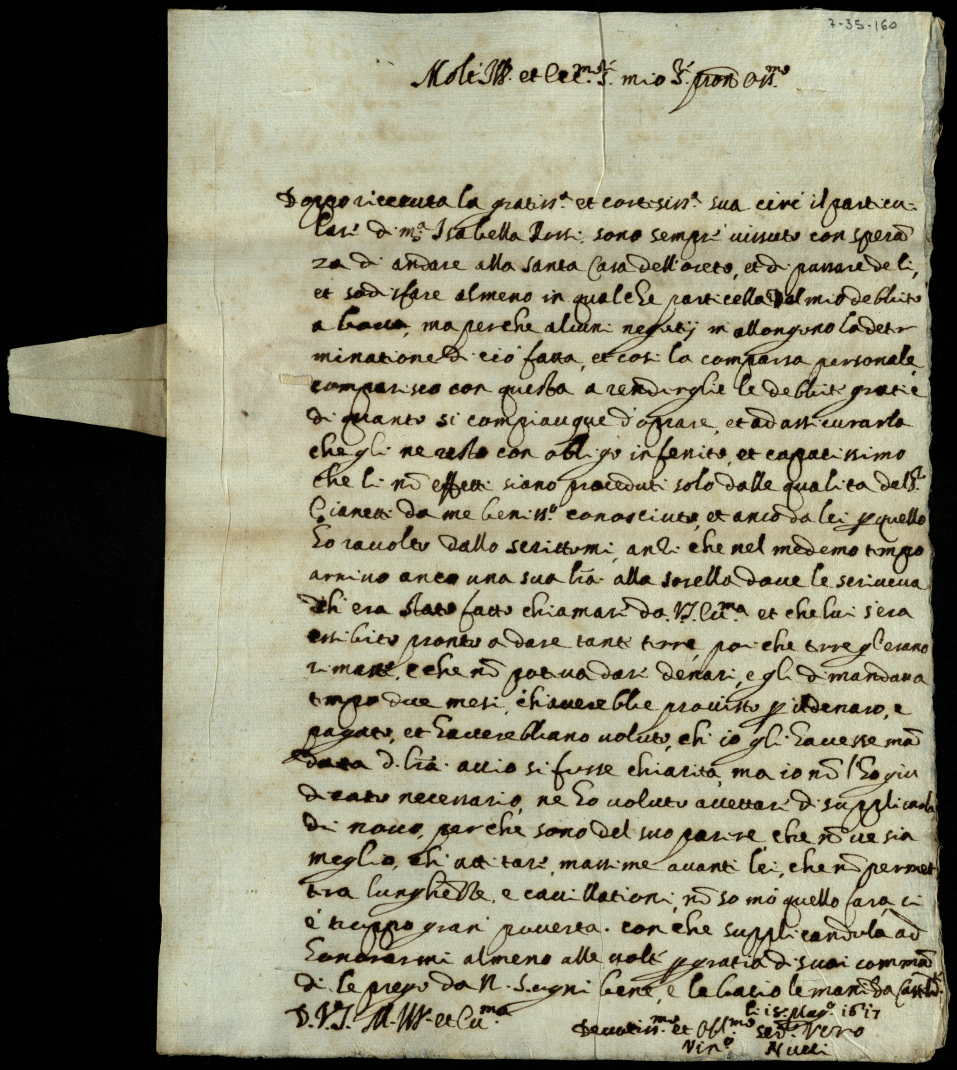 7-35-160
Molt' Ill. et Ecc.mo S.r mio S.r pron Oss.mo
Doppo riceuuta la gratiss.a et cortesiss.a sua circ' il particu-
lare di m.a Isabella Rossi, sono sempre uissuto con speran
za di andare alla santa Casa dell'oreto, et di passare de li,
et sodisfare almeno in qualche particella al mio debbito
ma perche alcuni negotij m'allongono la deter
minatione di ciò fatta, et cosi la comparsa personale
comparisco con questa a renderglie le debbite gratie
di quanto si compiacque d'oprare, et ad assicurarla
che gli ne resto con obligo infenito, et capacissimo
che li nō effetti siano proceduti solo dalle qualita del S.r
da me beniss.o conosciuto, et anco da lei p quello
ho racolto dallo scrittomi, anzi che nel medemo tempo
arriuo anco una sua lrā alla sorella doue le scriueua
ch'era stato fatto chiamare da V.S. Ecc.ma et che lui s'era
essibito pronto a dare tante terre, poi che terre gl'erano
rimaste, e che nō poteua dare denari, e gli dimandaua
tempo due mesi, c'hauerebbe prouisto p il denaro, e
pagato, et hauerebbano uoluto, ch' io gli hauesse mā
data d. lrā accio si fusse chiarita, ma io nō l'ho giu
dicato necessario, ne ho uoluto accettare di supplicarla
di nouo, perche sono del suo parere, che nō ue sia
meglio, ch' attitare, massime auanti lei, che nō permet
tera lunghezze, e cauillationi, nō so mo quello farà, ci
è troppo gran pouerta. con che supplicandola ad
honorarmi almeno alle uolte p gratia di suoi commā
di le prego da N. S. ogni bene, e le bacio le mani. Da
li 15 Mag.o 1617
D. V. S. M. Ill. et Ecc.ma
Deuotiss.mo et Obl.mo ser.re Vero
Vin.o Nuti